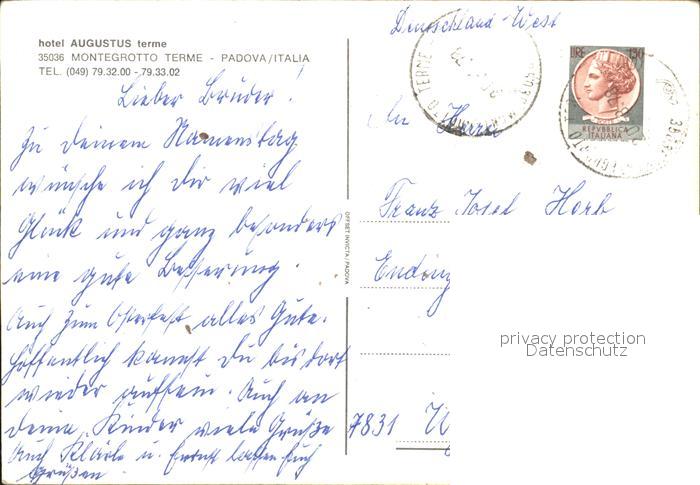 hotel AUGUSTUS terme
35036 MONTEGROTTO TERME - PADOVA/ITALIA
TEL. (049) 79.32.00 - 79.33.02
Lieber Bruder!
Zu Deinem Namenstag
wünsche ich dir viel
Glück und ganz besonders
eine gute Besserung.
Auch zum Osterfest alles Gute.
Hoffentlich kannst Du bis dort
wieder aufsein. Auch an
deine Kinder viele Grüße
Auch Klärle u. Ernst lassen Euch
Grüßen
OFFSET INVICTA/PADOVA
Deutschland-West
LIRE 130
REPVBBLICA
ITALIANA
An Herrn
Franz Josef Horb
Ending
7831 W
privacy protection
Datenschutz